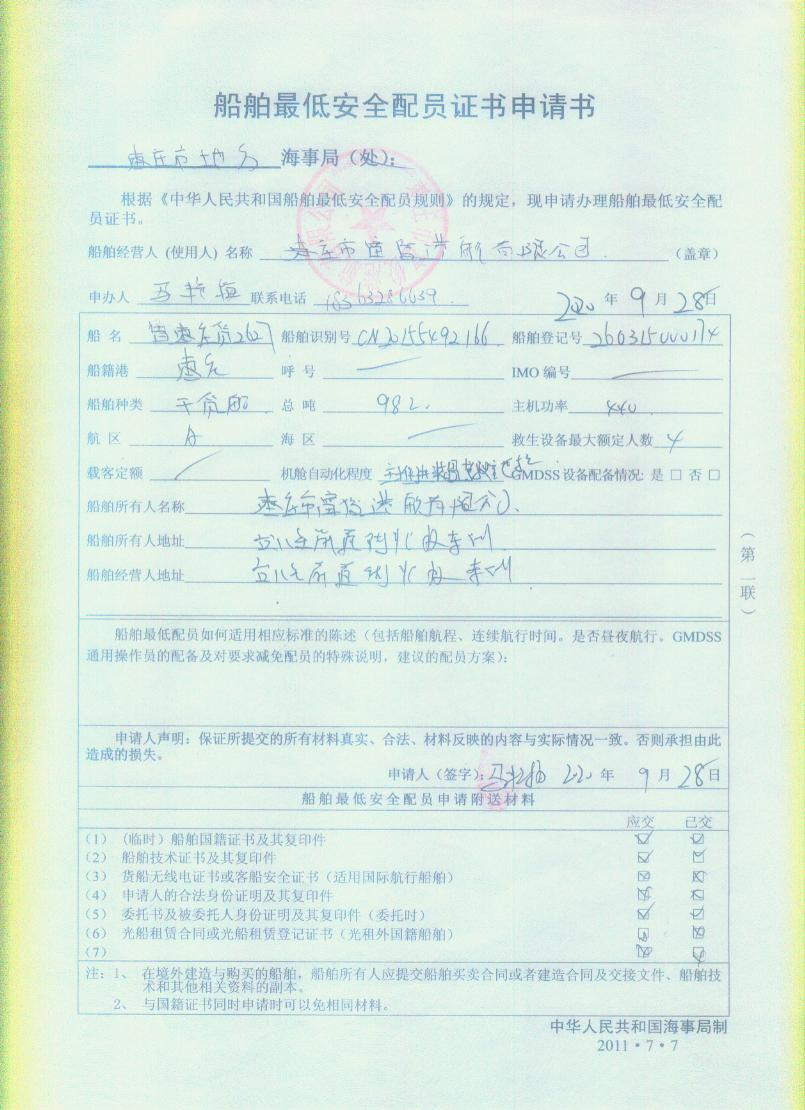 船舶最低安全配员证书申请书
枣庄市地方 海事局（处）：
根据《中华人民共和国船舶最低安全配员规则》的规定，现申请办理船舶最低安全配
员证书。
船舶经营人（使用人）名称 枣庄市 港航有限公司 （盖章）
申办人 马 联系电话 2020 年 9 月 28 日
船 名 鲁枣庄货2627 船舶识别号 CN20155492166 船舶登记号 260315000174
船籍港 枣庄 呼 号 IMO 编号
船舶种类 干货船 总 吨 982. 主机功率 440
航 区 A 海 区 救生设备最大额定人数 4
载客定额 机舱自动化程度 GMDSS 设备配备情况: 是 □ 否 □
船舶所有人名称 枣庄市 港航有限公司
船舶所有人地址
船舶经营人地址
（第一联）
船舶最低配员如何适用相应标准的陈述（包括船舶航程、连续航行时间。是否昼夜航行。GMDSS
通用操作员的配备及对要求减免配员的特殊说明，建议的配员方案）：
申请人声明：保证所提交的所有材料真实、合法、材料反映的内容与实际情况一致。否则承担由此
造成的损失。
申请人（签字）： 马 年 9 月 28 日
船舶最低安全配员申请附送材料
应交 已交
（1）（临时）船舶国籍证书及其复印件
（2） 船舶技术证书及其复印件
（3） 货船无线电证书或客船安全证书（适用国际航行船舶）
（4） 申请人的合法身份证明及其复印件
（5） 委托书及被委托人身份证明及其复印件（委托时）
（6） 光船租赁合同或光船租赁登记证书（光租外国籍船舶）
（7）
注：1、 在境外建造与购买的船舶，船舶所有人应提交船舶买卖合同或者建造合同及交接文件、船舶技
术和其他相关资料的副本。
2、 与国籍证书同时申请时可以免相同材料。
中华人民共和国海事局制
2011·7·7